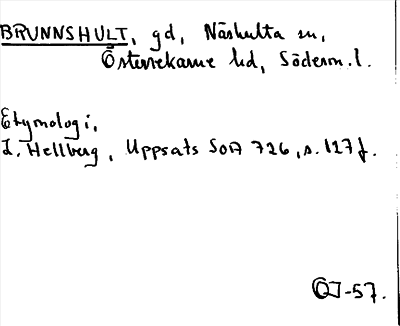 BRUNNSHULT, gd, Näshulta sn,
Österrekarne hd, Söderm. l.
Etymologi,
L. Hellberg, Uppsats SOA 726, s. 127 f.
OJ-57.